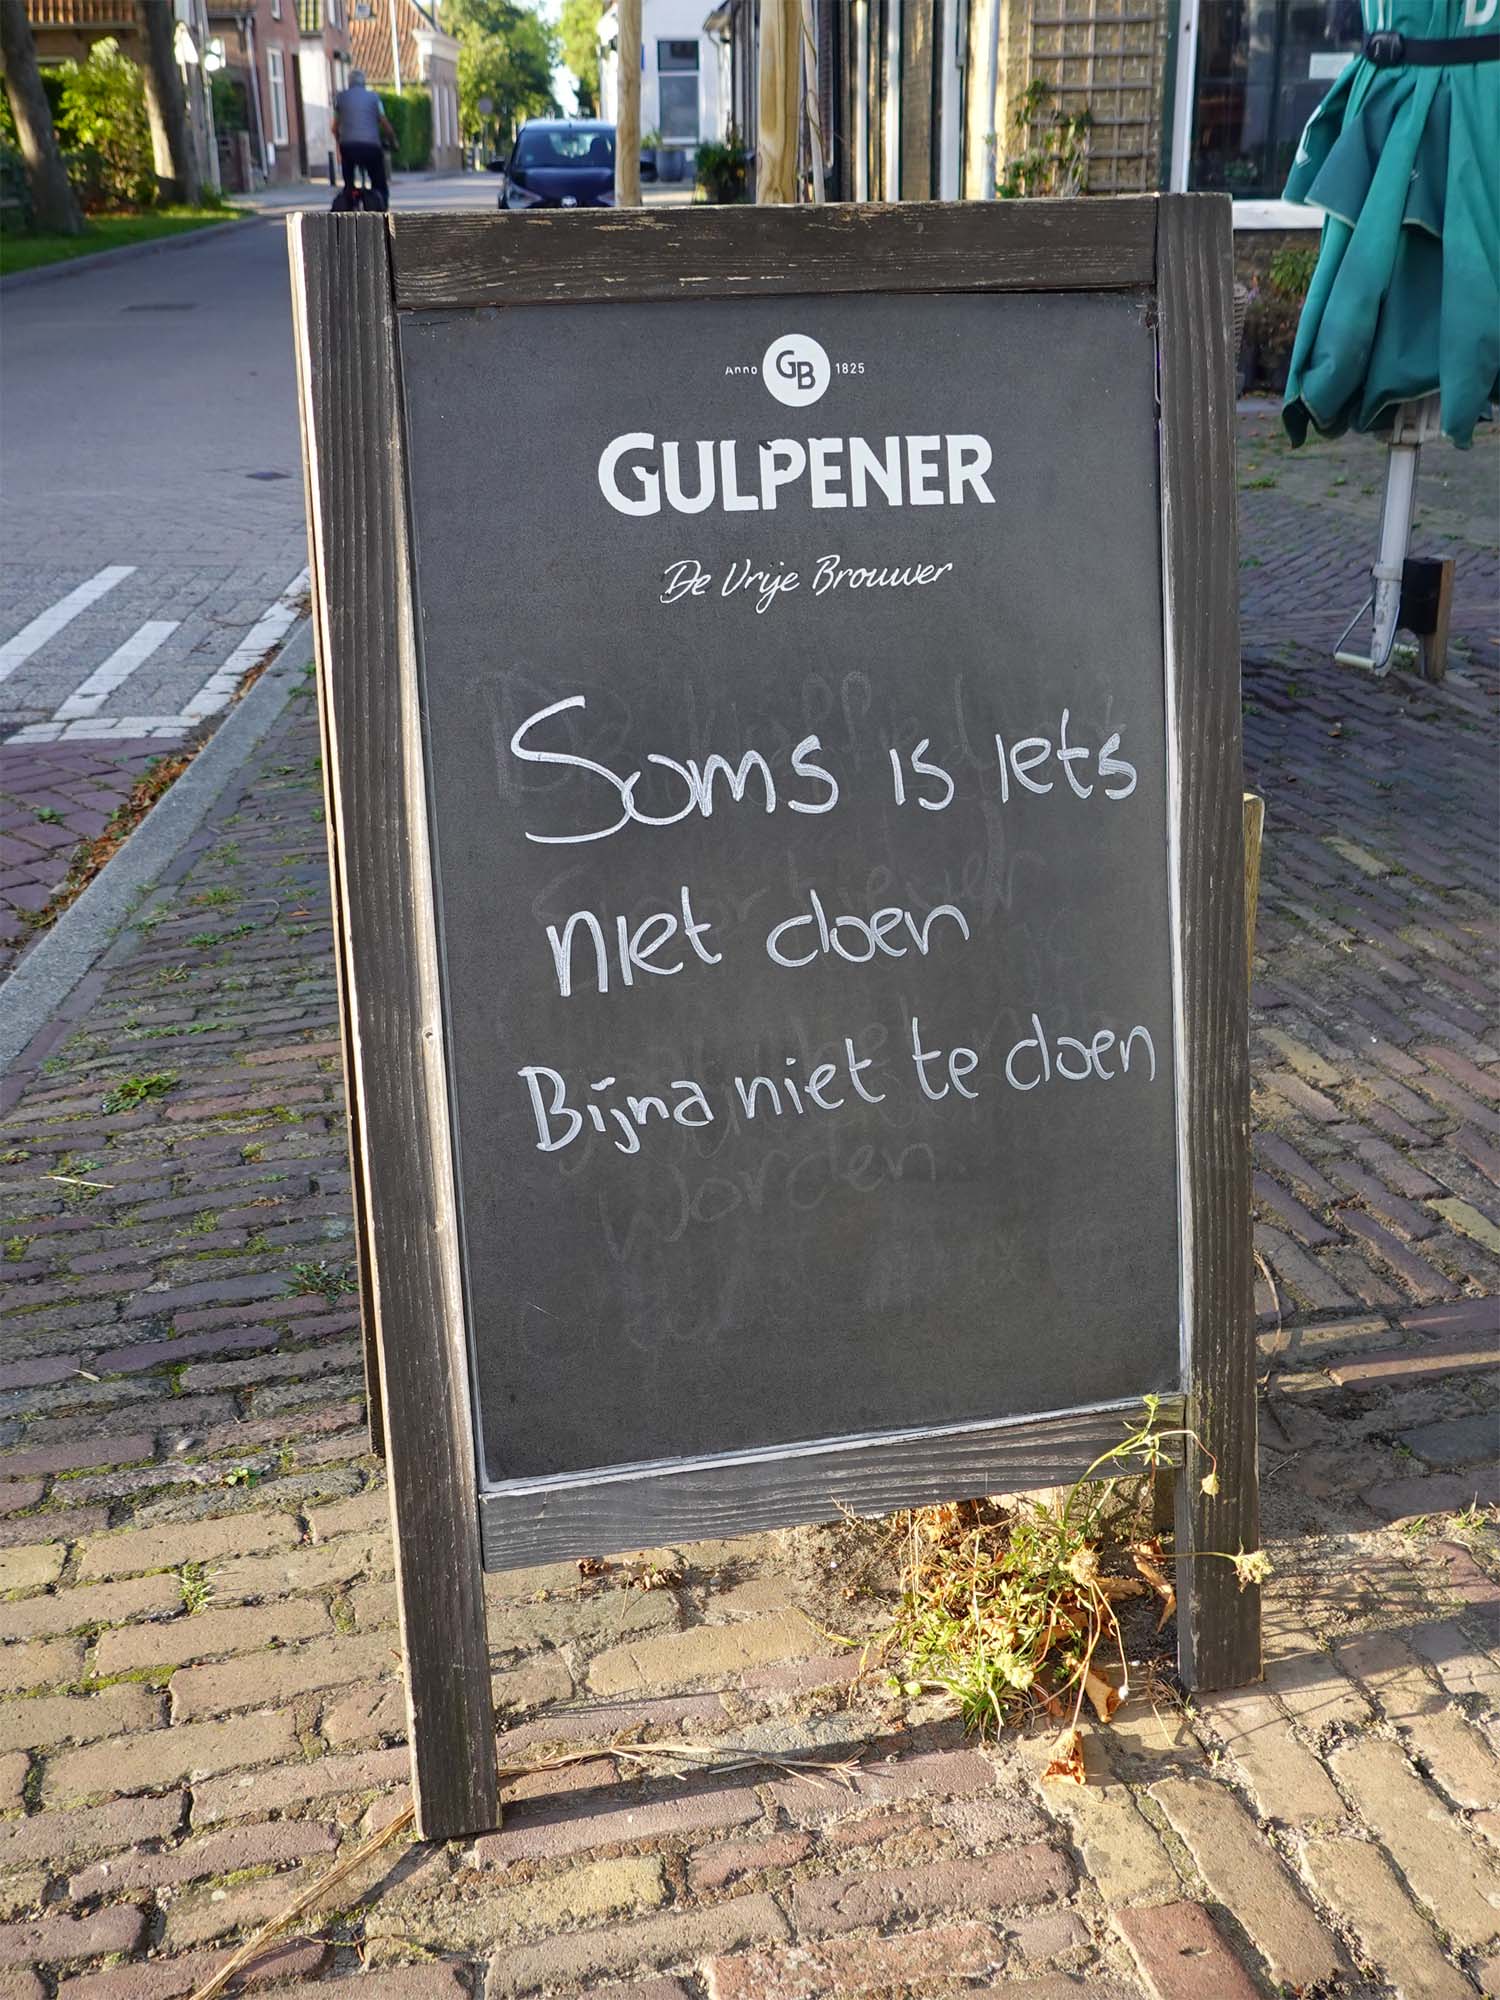 Anno GB 1825
GULPENER
De Vrije Brouwer
Soms is iets
niet doen
Bijna niet te doen
worden